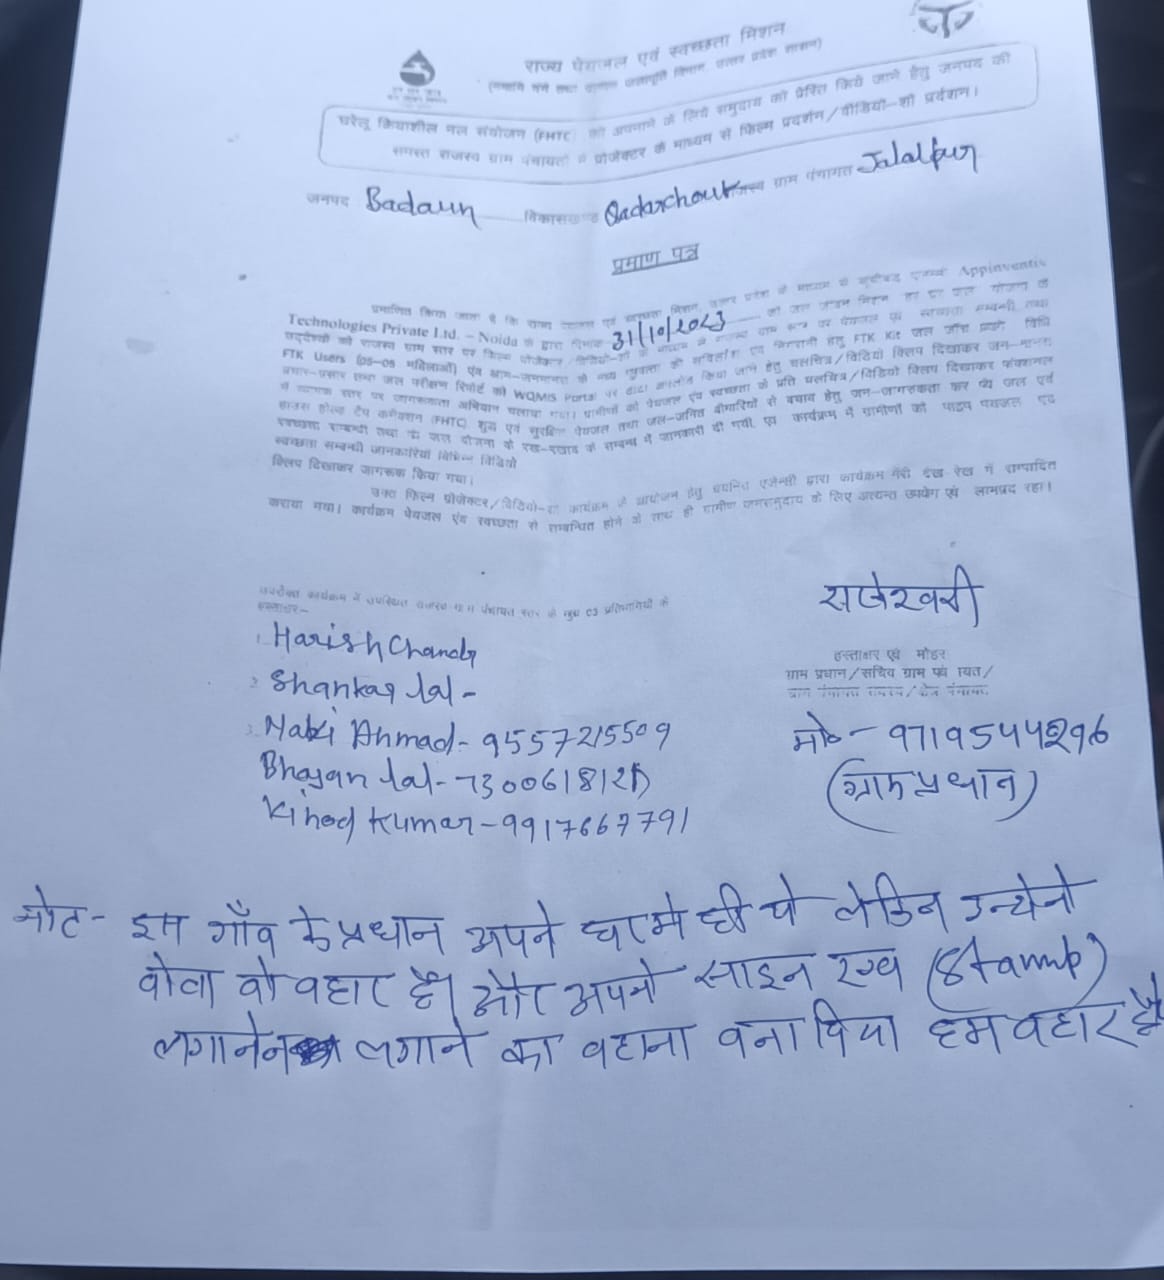 राज्य पेयजल एवं स्वच्छता मिशन
घरेलू क्रियाशील नल संयोजन (FHTC) को अपनाने के लिये समुदाय को प्रेरित किये जाने हेतु जनपद की
समस्त राजस्व ग्राम पंचायतों में प्रोजेक्टर के माध्यम से फिल्म प्रदर्शन/वीडियो-शो प्रदर्शन।
जनपद Badaun विकासखण्ड Qadarchouk राजस्व ग्राम पंचायत Jalalpur
प्रमाण पत्र
प्रमाणित किया जाता है कि राज्य पेयजल एवं स्वच्छता मिशन, उत्तर प्रदेश के माध्यम से सूचीबद्ध एजेन्सी Appinventiv
Technologies Private Ltd. – Noida के द्वारा दिनांक 31/10/2023 को जल जीवन मिशन हर घर जल योजना के
उद्देश्यों को राजस्व ग्राम स्तर पर फिल्म प्रोजेक्टर/विडियो-शो के माध्यम से राजस्व ग्राम स्तर पर पेयजल एवं स्वच्छता सम्बन्धी तथा
FTK Users (05-05 महिलाओं) एवं ग्राम-जनमानस के मध्य गुणवत्ता की सर्विलांस एवं निगरानी हेतु FTK Kit जल जाँच प्रयोग विधि
प्रचार-प्रसार तथा जल परीक्षण रिपोर्ट को WQMIS Portal पर डाटा अपलोड किया जाने हेतु चलचित्र/विडियो क्लिप दिखाकर जन-मानस
में व्यापक स्तर पर जागरूकता अभियान चलाया गया। ग्रामीणों को पेयजल एवं स्वच्छता के प्रति चलचित्र/विडियो क्लिप दिखाकर फंक्शनल
हाउस होल्ड टैप कनेक्शन (FHTC) शुद्ध एवं सुरक्षित पेयजल तथा जल-जनित बीमारियों से बचाव हेतु जन-जागरूकता कर पेय जल एवं
स्वच्छता सम्बन्धी तथा पेय जल योजना के रख-रखाव के सम्बन्ध में जानकारी दी गयी, एवं कार्यक्रम में ग्रामीणों को पाइप पेयजल एवं
स्वच्छता सम्बन्धी जानकारियां विभिन्न विडियो
क्लिप दिखाकर जागरूक किया गया।
उक्त फिल्म प्रोजेक्टर/विडियो-शो कार्यक्रम के आयोजन हेतु चयनित एजेन्सी द्वारा कार्यक्रम मेरी देख रेख में सम्पादित
कराया गया। कार्यक्रम पेयजल एंव स्वच्छता से सम्बन्धित होने के साथ ही ग्रामीण जनसमुदाय के लिए अत्यन्त उपयोग एवं लाभप्रद रहा।
उपरोक्त कार्यक्रम में उपस्थित राजस्व ग्राम पंचायत स्तर के मुख्य 03 प्रतिभागियों के
हस्ताक्षर-
राजेश्वरी
1. Harish Chandr
2. Shankar lal -
हस्ताक्षर एवं मोहर
ग्राम प्रधान/सचिव ग्राम पंचायत/
3. Nabi Ahmad - 9557215509
मो०- 9719544296
Bhajan lal -
(ग्राम प्रधान)
Vinod Kumar - 9917667791
नोट- इस गाँव के प्रधान अपने घर मे ही थे लेकिन उन्होने
वोला वो वहार है। और अपनो साइन एव (Stamp)
लगाने लगाने का वहाना वना दिया हम वहार है